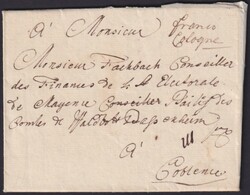 à Monsieur
franco
Cologne
Monsieur Fachbach Conseiller
des Finances de S A Electorale
de Mayence Conseiller
Comtes de Waldbott Bassenheim
à
Coblence